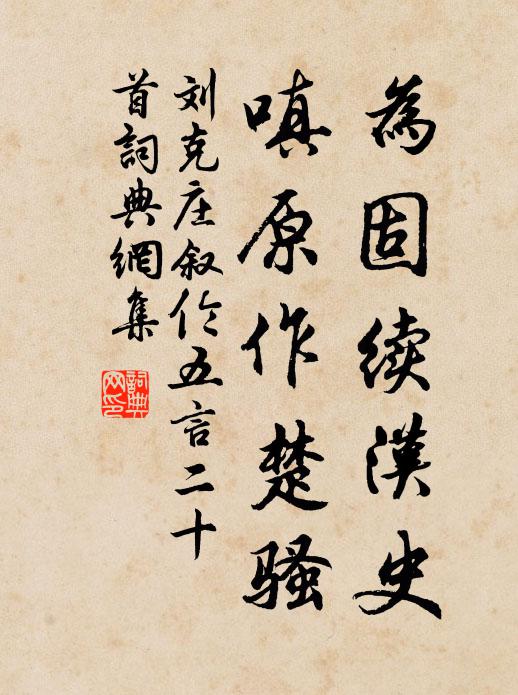 為固续漢史
嗔原作楚骚
刘克庄叙伦五言二十
首詞典網集
詞典网印